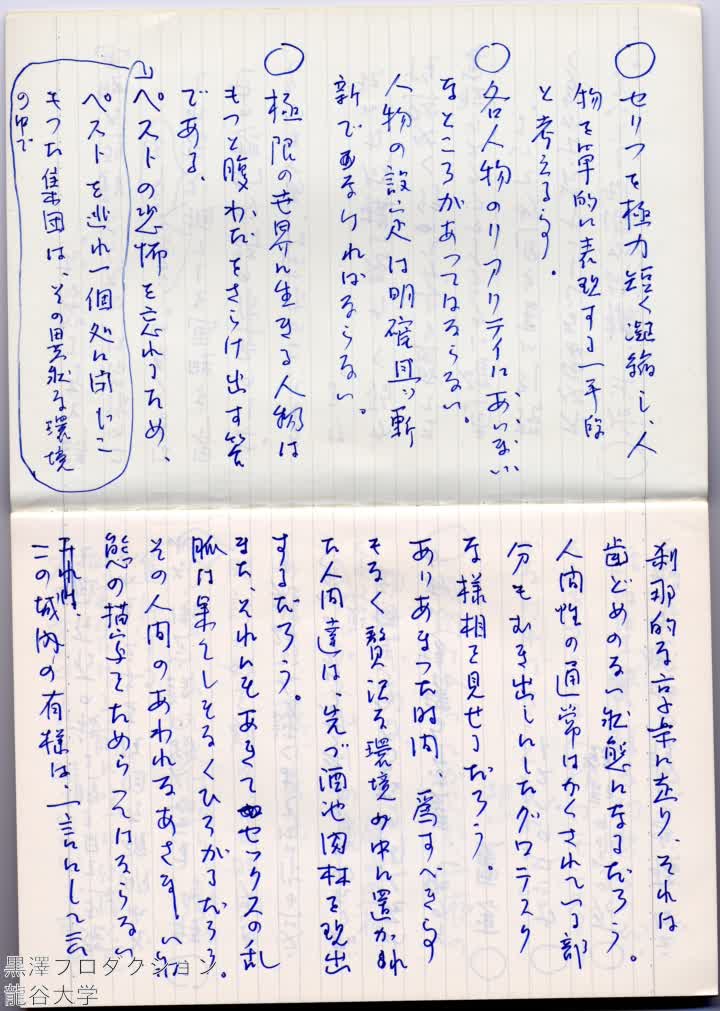 ○ セリフを極力短く凝縮し、人
物を単的に表現する一手段
と考える事。
○ 各人物のリアリティにあいまい
なところがあってはならない。
人物の設定は明確且つ斬
新でなければならない。
○ 極限の世界に生きる人物は
もっと腹わたをさらけ出す筈
である、
「ペストの恐怖を忘れるため、
ペストを逃れ一個処に閉じこ
もった集団は、その異状な環境
の中で
刹那的な享楽に走り、それは
歯どめのない状態になるだろう。
人間性の通常はかくされている部
分もむき出しにしたグロテスク
な様相を見せるだろう
ありあまった時間、為すべき事
もなく贅沢な環境の中に置かれ
た人間達は、先づ酒池肉林を現出
するだろう。
また、それにもあきてセックスの乱
脈は果てしもなくひろがるだろう。
その人間のあわれなあさましい
態の描写をためらってはならない
それは、
この城内の有様は、一言にして云
黒澤プロダクション
龍谷大学